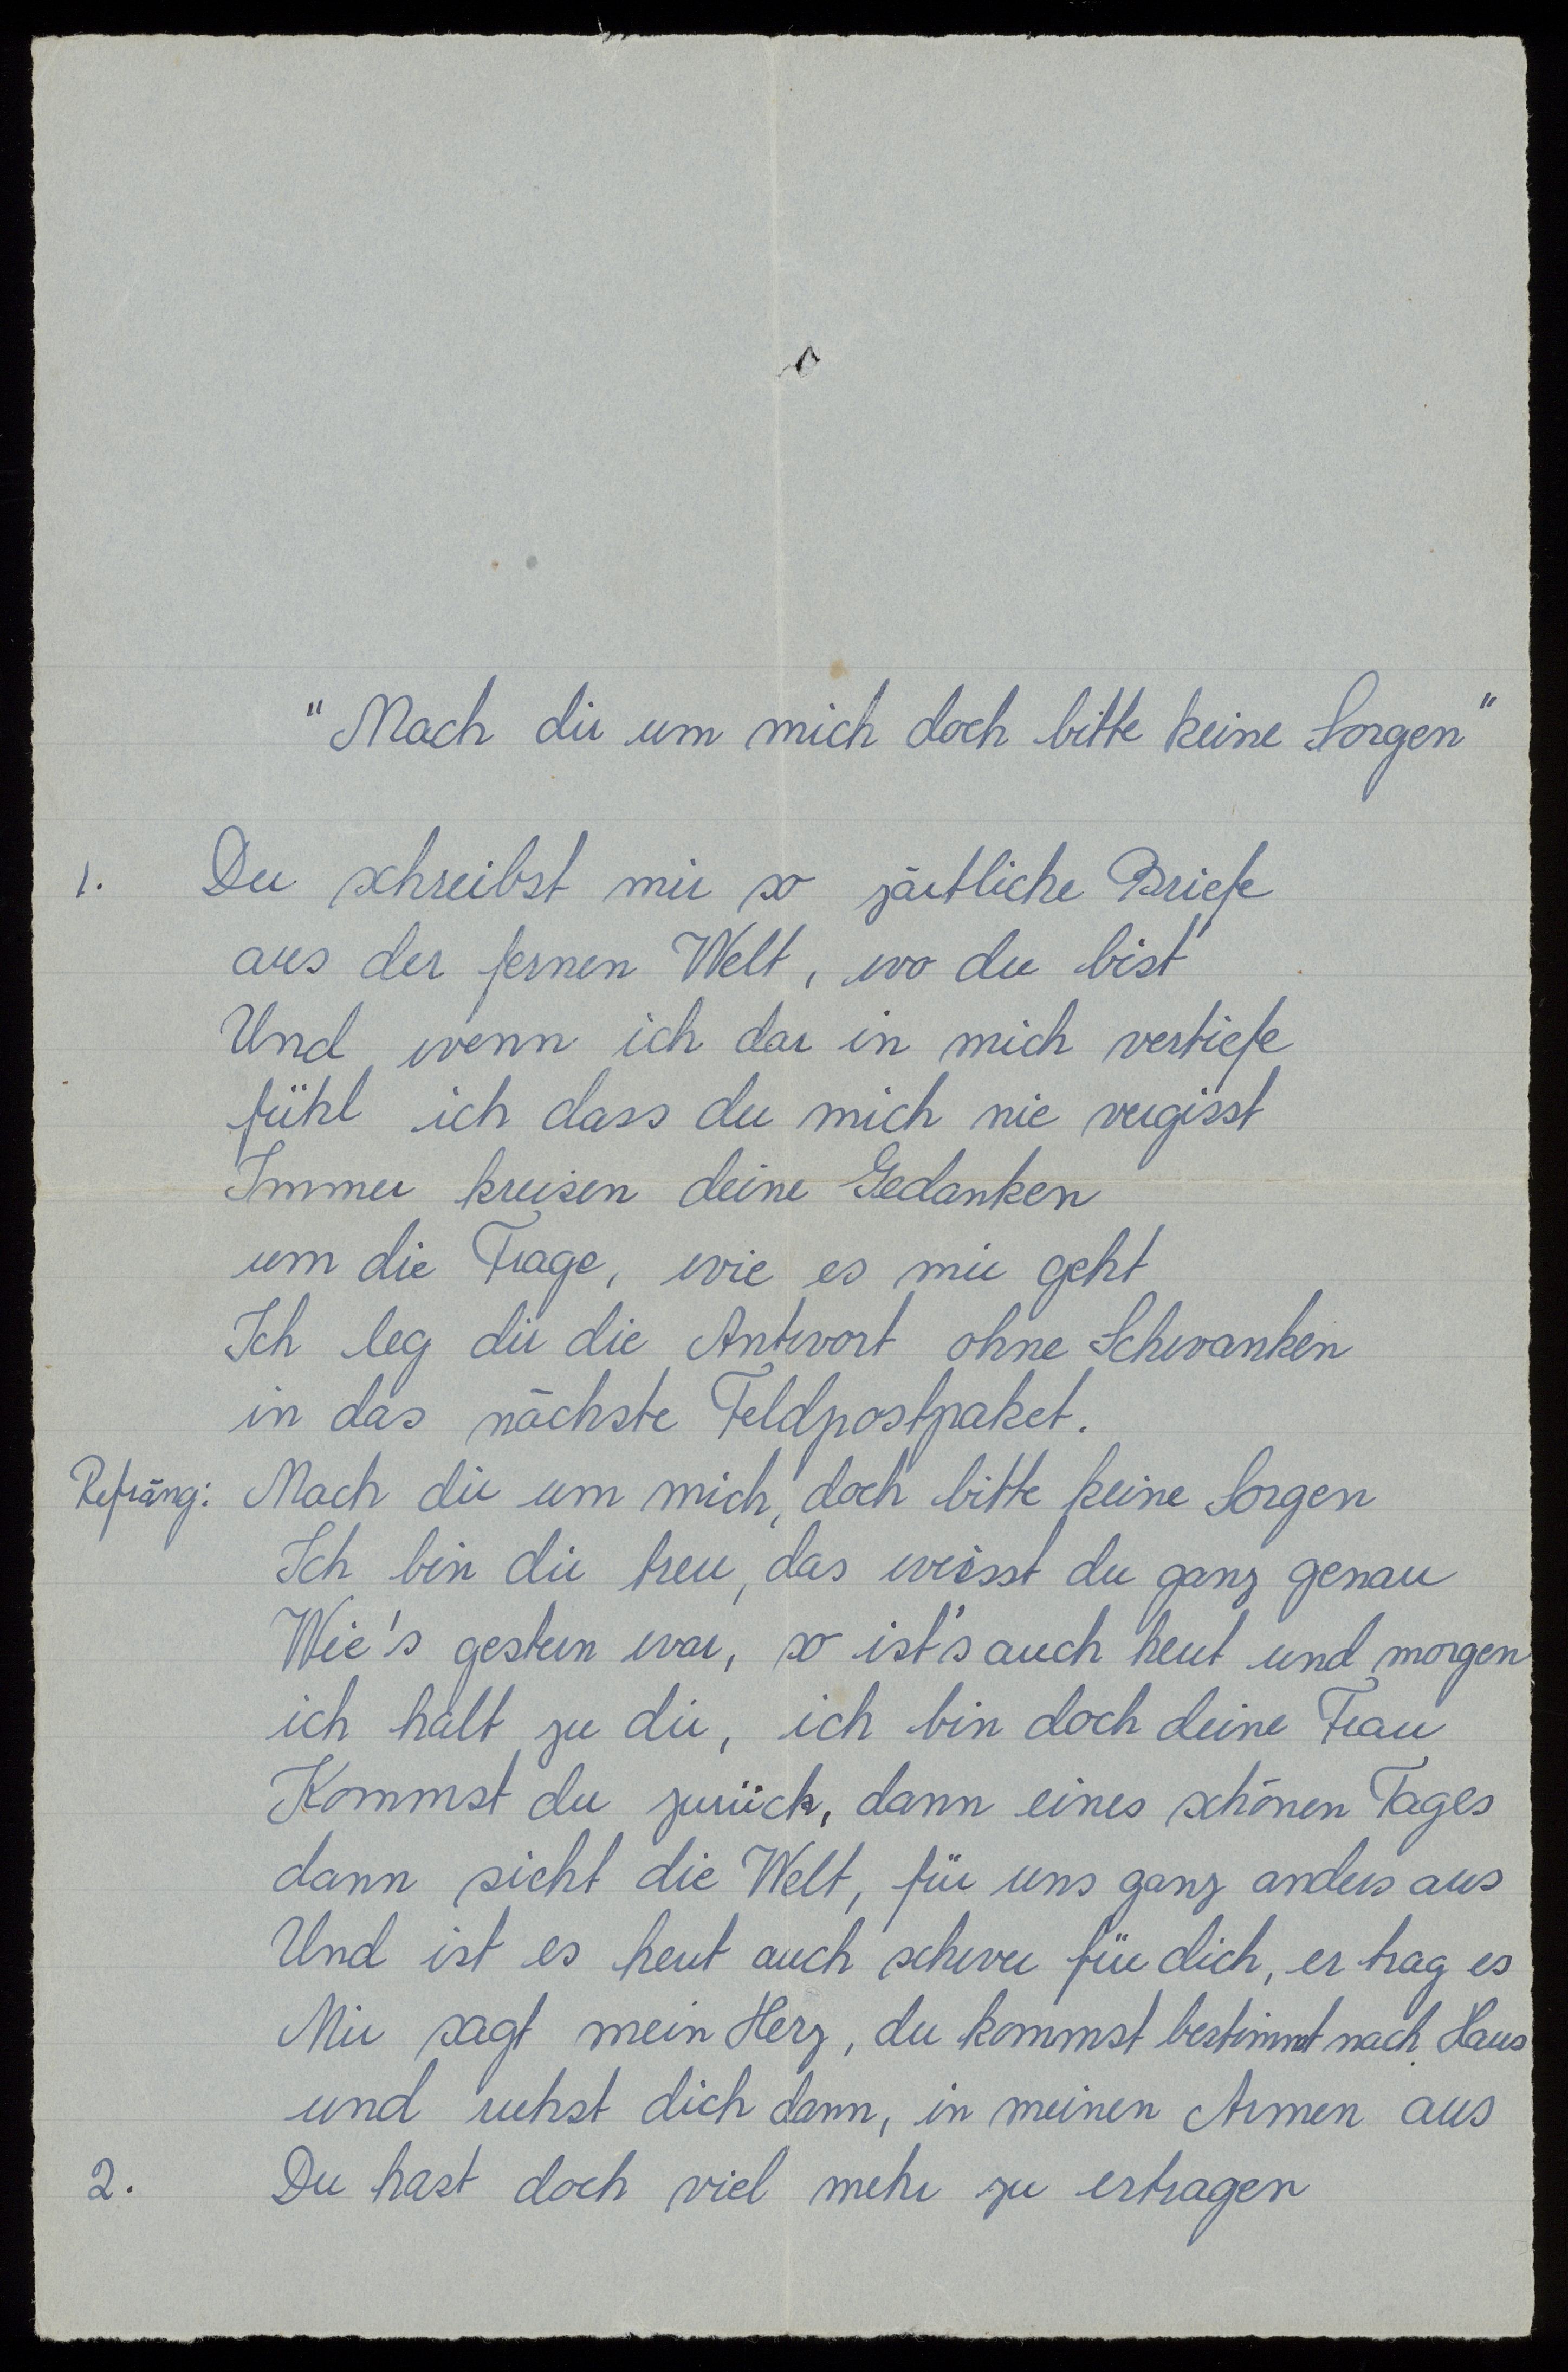 "Mach dir um mich doch bitte keine Sorgen"
1. Du schreibst mir so zärtliche Briefe
aus der fernen Welt, wo du bist
Und wenn ich dar in mich vertiefe
fühl ich dass du mich nie vergisst
Immer kreisen deine Gedanken
um die Frage, wie es mir geht
Ich leg dir die Antwort ohne Schwanken
in das nächste Feldpostpaket.
Refräng: Mach dir um mich, doch bitte keine Sorgen
Ich bin dir treu, das weisst du ganz genau
Wie's gestern war, so ist's auch heut und morgen
ich halt zu dir, ich bin doch deine Frau
Kommst du zurück, dann eines schönen Tages
dann sieht die Welt, für uns ganz anders aus
Und ist es heut auch schwer für dich, er trag es
Mir sagt mein Herz, du kommst bestimmt nach Haus
und ruhst dich dann, in meinen Armen aus
2. Du hast doch viel mehr zu ertragen